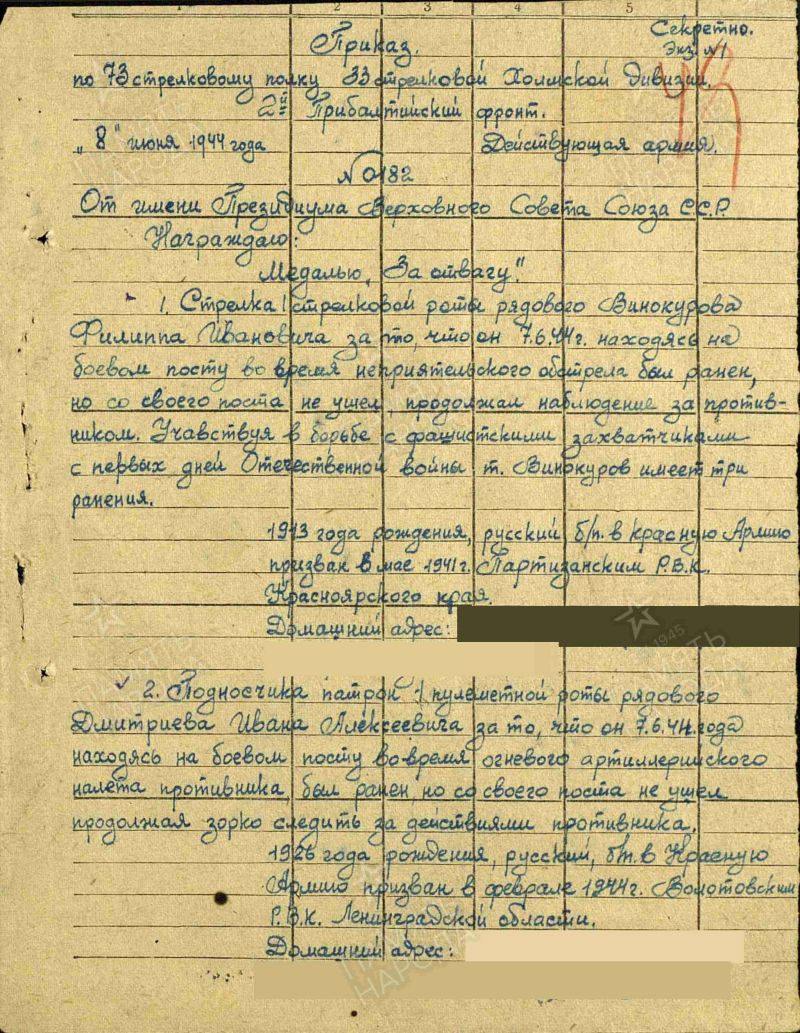 1 2 3 4 5
Секретно.
Экз. №1
Приказ.
по 73 стрелковому полку 33 стрелковой Холмской дивизии.
2й Прибалтийский фронт.
„8" июня 1944 года Действующая армия.
№ 0182
От имени Президиума Верховного Совета Союза С.С.Р.
Награждаю:
Медалью „За отвагу".
1. Стрелка 1 стрелковой роты рядового Винокурова
Филиппа Ивановича за то, что он 7.6.44г. находясь на
боевом посту во время неприятельского обстрела был ранен,
но со своего поста не ушел, продолжал наблюдение за против-
ником. Учавствуя в борьбе с фашистскими захватчиками
с первых дней Отечественной войны т. Винокуров имеет три
ранения.
1913 года рождения, русский б/п. в красную Армию
призван в мае 1941г. Партизанским Р.В.К.
Красноярского края.
Домашний адрес:
2. Подносчика патрон 1 пулеметной роты рядового
Дмитриева Ивана Алексеевича за то, что он 7.6.44.года
находясь на боевом посту во время огневого артиллерийского
налета противника, был ранен, но со своего поста не ушел
продолжая зорко следить за действиями противника.
1926 года рождения, русский, б/п. в Красную
Армию призван в феврале 1944г. Волотовским
Р.В.К. Ленинградской области.
Домашний адрес: